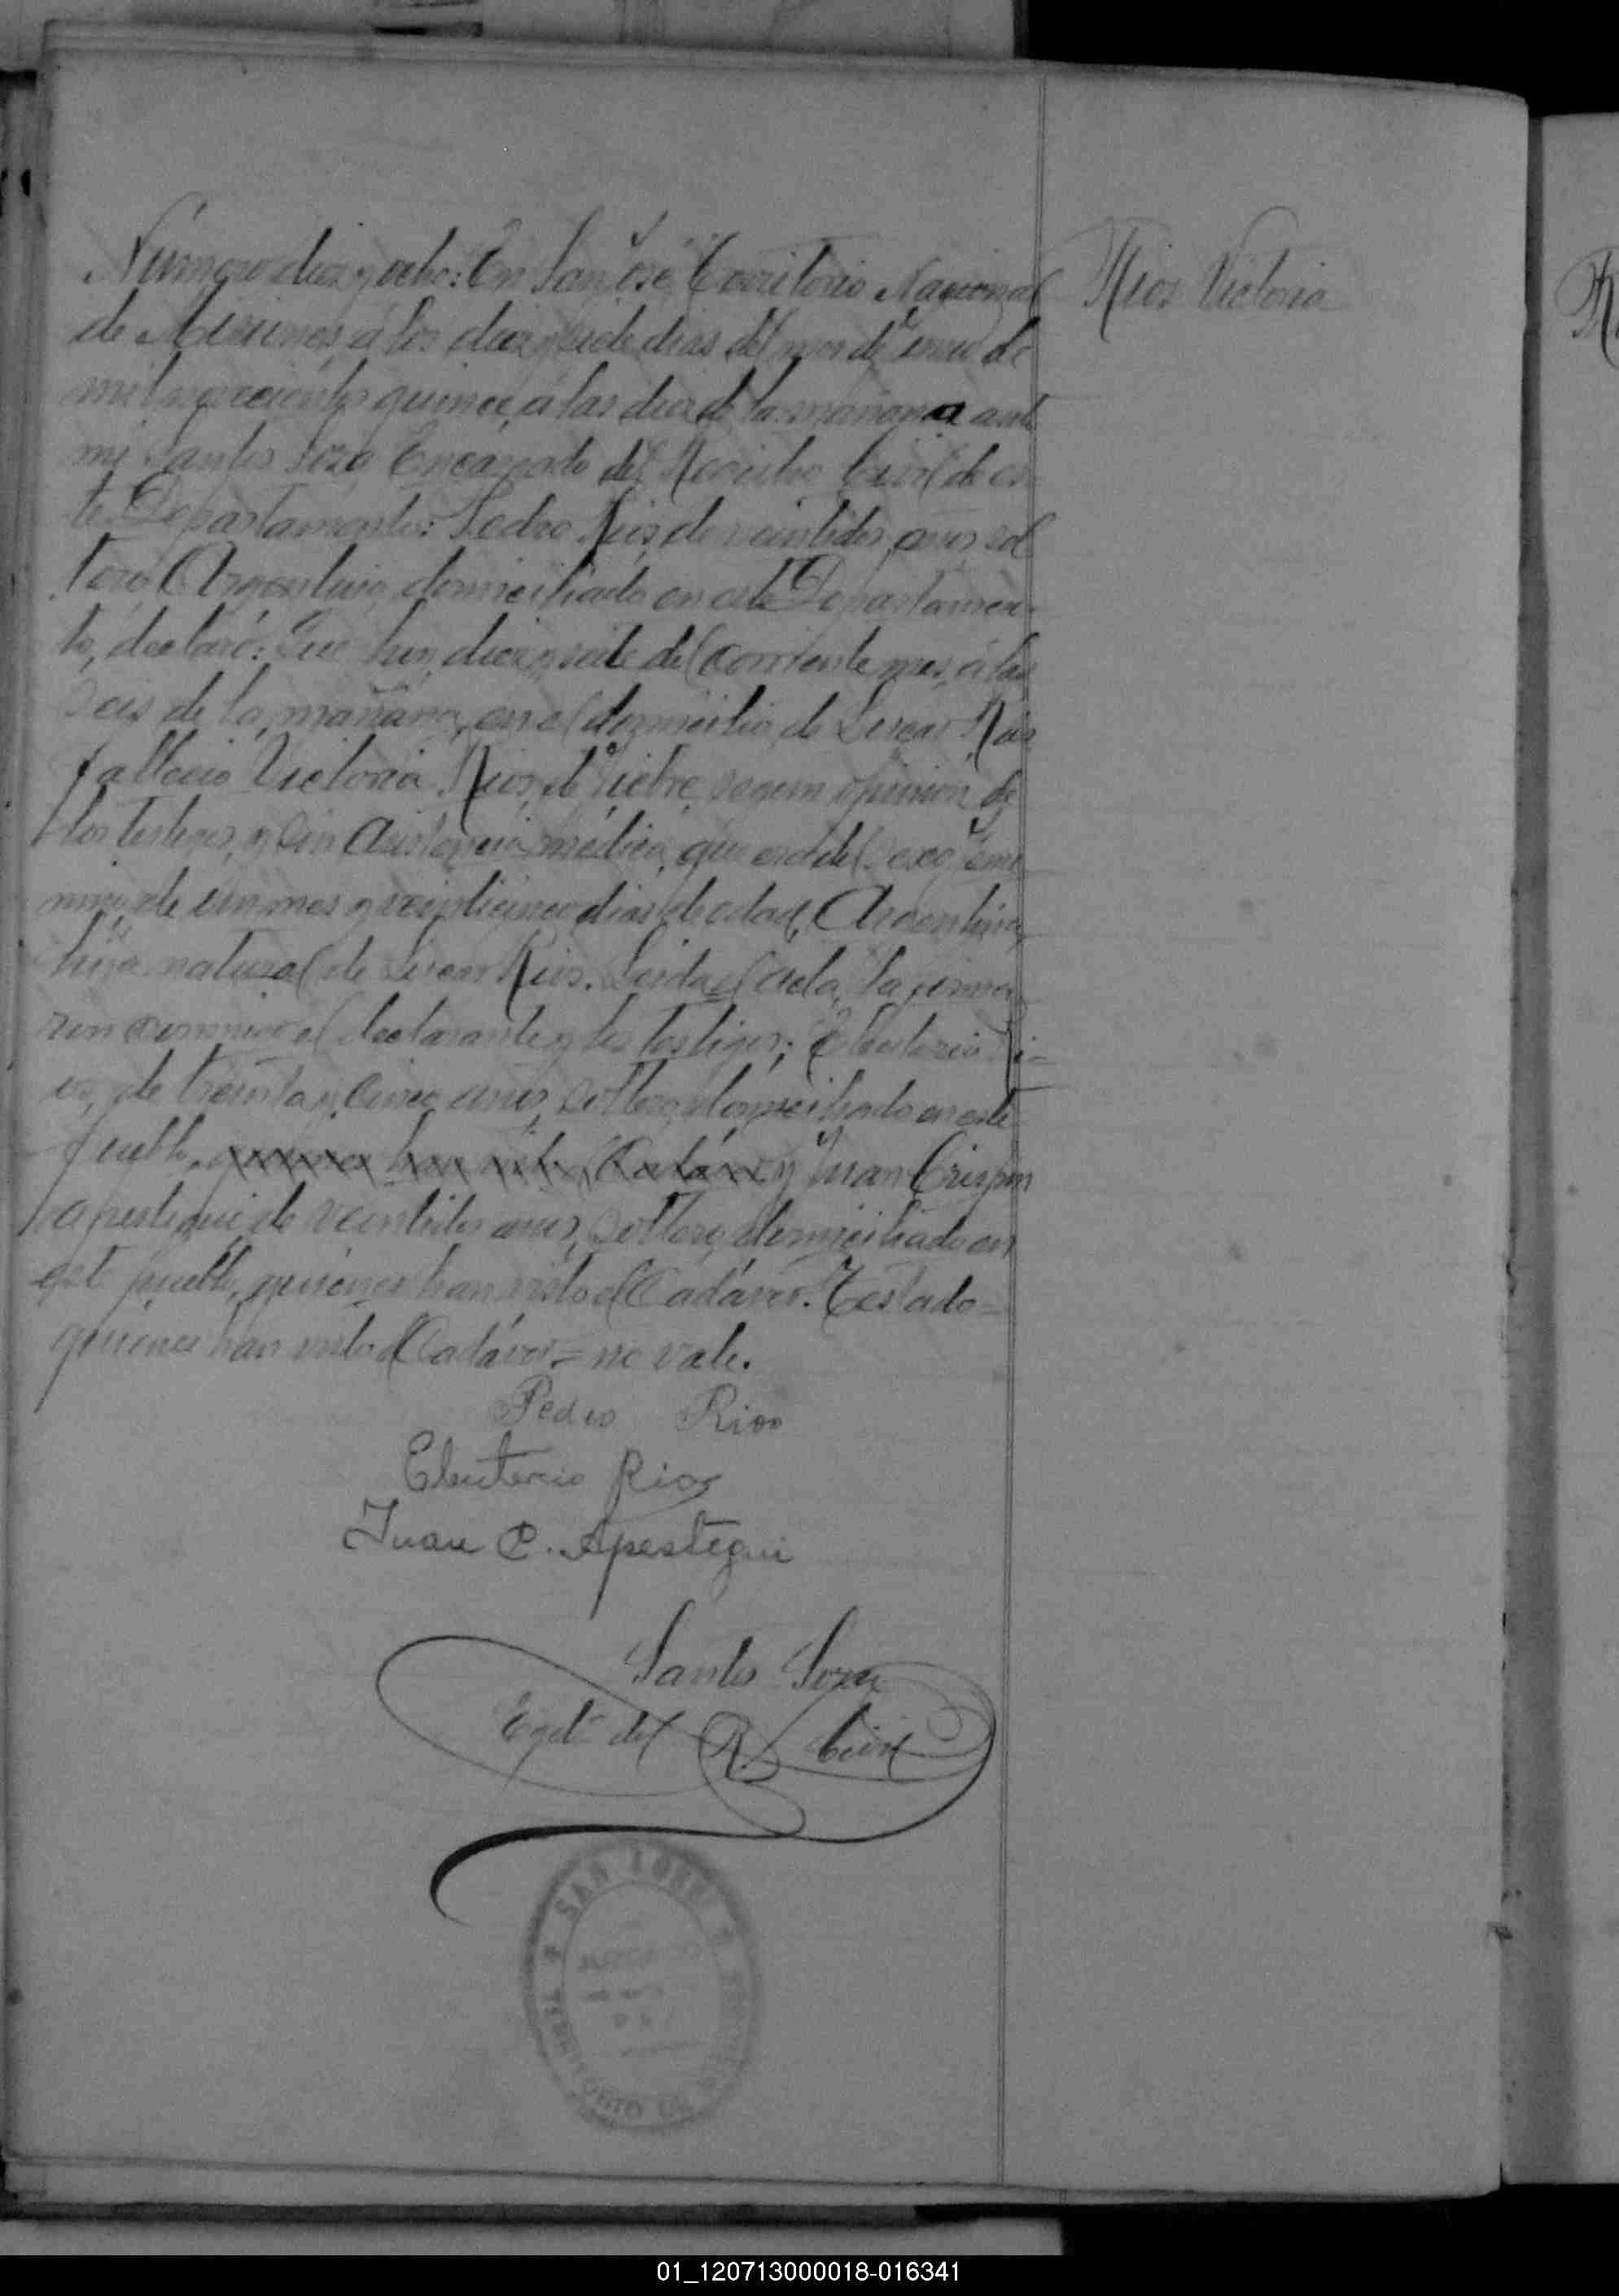 Número diez y ocho: En San José Territorio Nacional
de Misiones, á los diez y siete dias del mes de de
mil novecientos quince, á las diez de la mañana ante
mi Santos Encargado del Registro Civil de es
te Departamento: Pedro Rios, de veintidos años, sol
tero, Argentino, domiciliado en este Departamen-
to, declaró: Que hoy diez y siete del corriente mes, á las
seis de la mañana, en el domicilio de Rios
fallecio Victoria Rios, de fiebre, segun opinión de
los testigos, y sin asistencia médica, que era del sexo feme
nino, de un mes y veinticinco dias de edad, Argentina,
hija natural de Rios. Leida el acta, la firma
ron conmigo el declarante y los testigos; Eleuterio Ri-
os, de treinta y cinco años, soltero, domiciliado en este
pueblo, quienes han visto el Cadáver y Juan Crispin
Apestegui, de veintidos años, soltero, domiciliado en
este pueblo, quienes han visto el Cadáver. Testado=
quienes han visto el Cadáver = no vale.
Pedro Rios
Eleuterio Rios
Juan C. Apestegui
Santos
del R. Civil
SAN JOSE
TERRITORIO DE
Rios Victoria
01_120713000018-016341